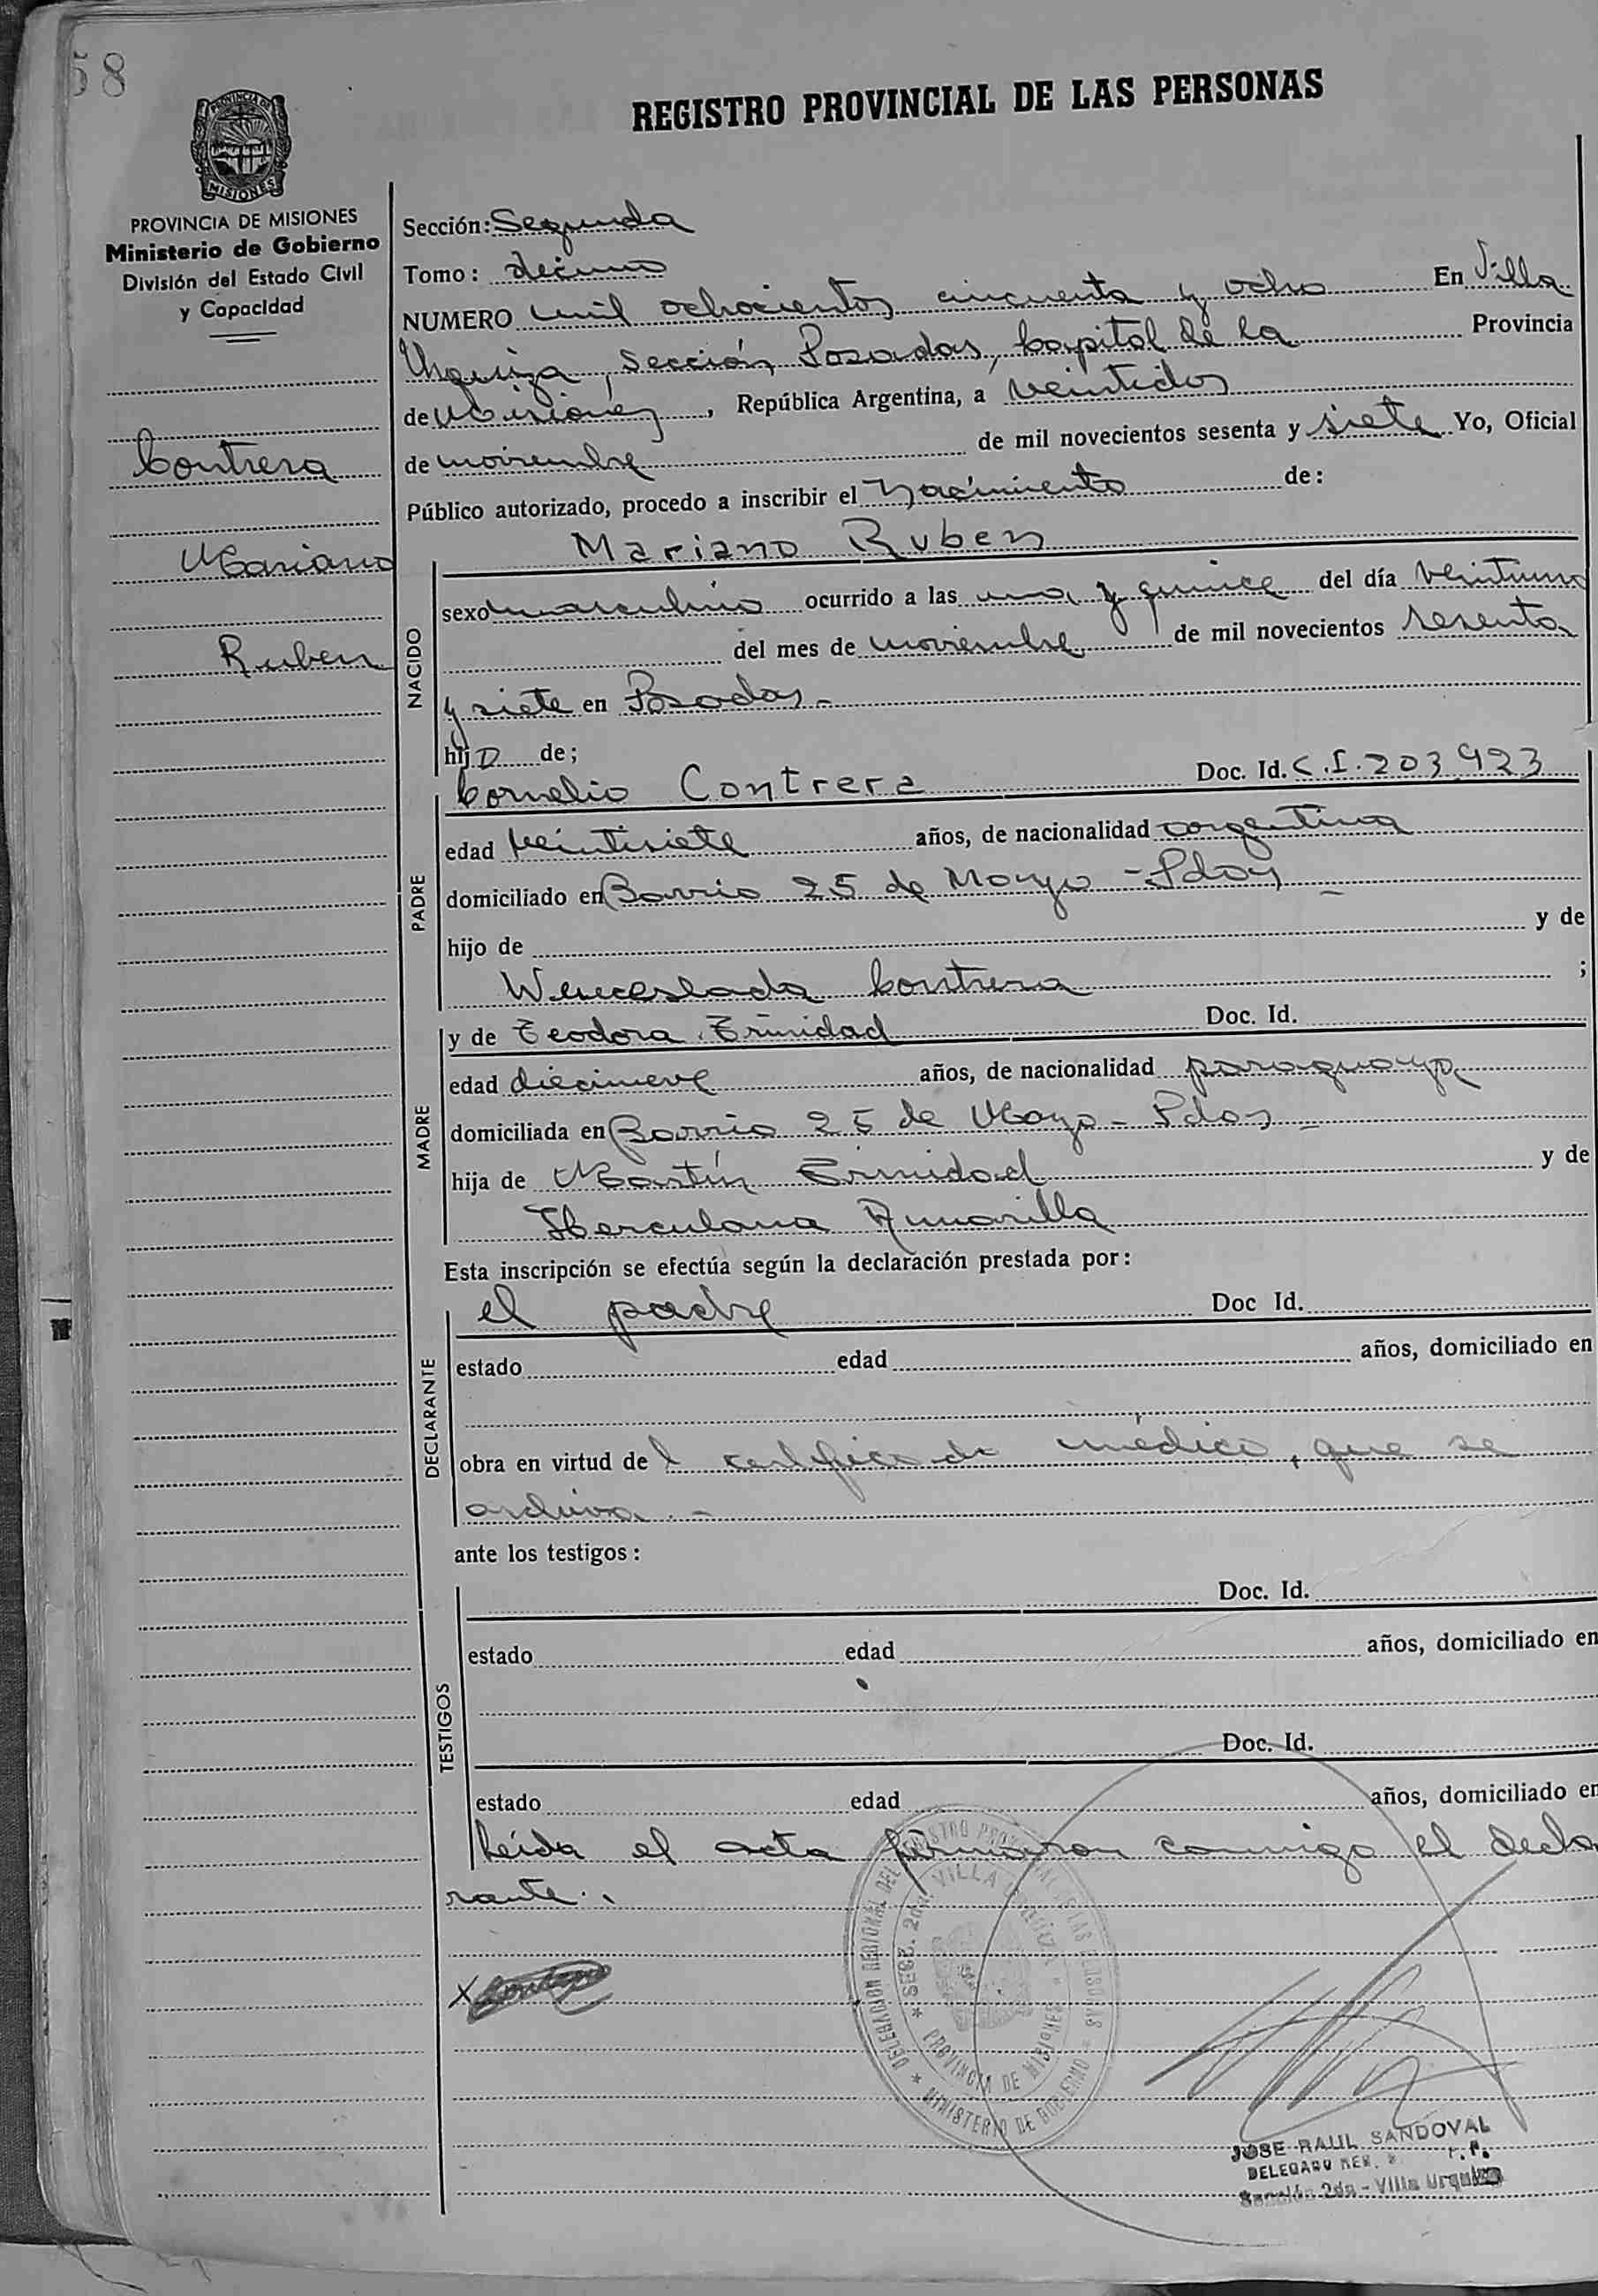 58
REGISTRO PROVINCIAL DE LAS PERSONAS
PROVINCIA DE MISIONES
MISIONES
PROVINCIA DE MISIONES
Ministerio de Gobierno
División del Estado Civil
y Capacidad
Contrera
Mariano
Ruben
Sección: Segunda
Tomo: decimo
NUMERO mil ochocientos cincuenta y ocho En Villa
Urquiza, Sección Posadas, Capital de la Provincia
de Misiones, República Argentina, a veintidos
de noviembre de mil novecientos sesenta y siete Yo, Oficial
Público autorizado, procedo a inscribir el Nacimiento de:
Mariano Ruben
NACIDO
sexo masculino ocurrido a las una y quince del día veintiuno
del mes de noviembre de mil novecientos sesenta
y siete en Posadas.-
hijo de;
PADRE
Cornelio Contrera Doc. Id. C.I. 203.923
edad veintisiete años, de nacionalidad argentina
domiciliado en Barrio 25 de Mayo - Pdas -
hijo de y de
Wenceslada Contrera ;
MADRE
y de Teodora Trinidad Doc. Id.
edad diecinueve años, de nacionalidad paraguaya
domiciliada en Barrio 25 de Mayo - Pdas -
hija de Martín Trinidad y de
Herculana Amarilla
Esta inscripción se efectúa según la declaración prestada por:
DECLARANTE
el padre Doc Id.
estado edad años, domiciliado en
obra en virtud del certificado médico, que se
archiva.-
ante los testigos:
TESTIGOS
Doc. Id.
estado edad años, domiciliado en
Doc. Id.
estado edad años, domiciliado en
Leída el acta firmaron conmigo el decla
rante.
X
DELEGACION REGIONAL DEL REGISTRO PROVINCIAL DE LAS PERSONAS * MINISTERIO DE GOBIERNO *
* SECC. 2da. VILLA URQUIZA * PROVINCIA DE MISIONES
JOSE RAUL SANDOVAL
DELEGADO REG.
Sección 2da - Villa Urquiza